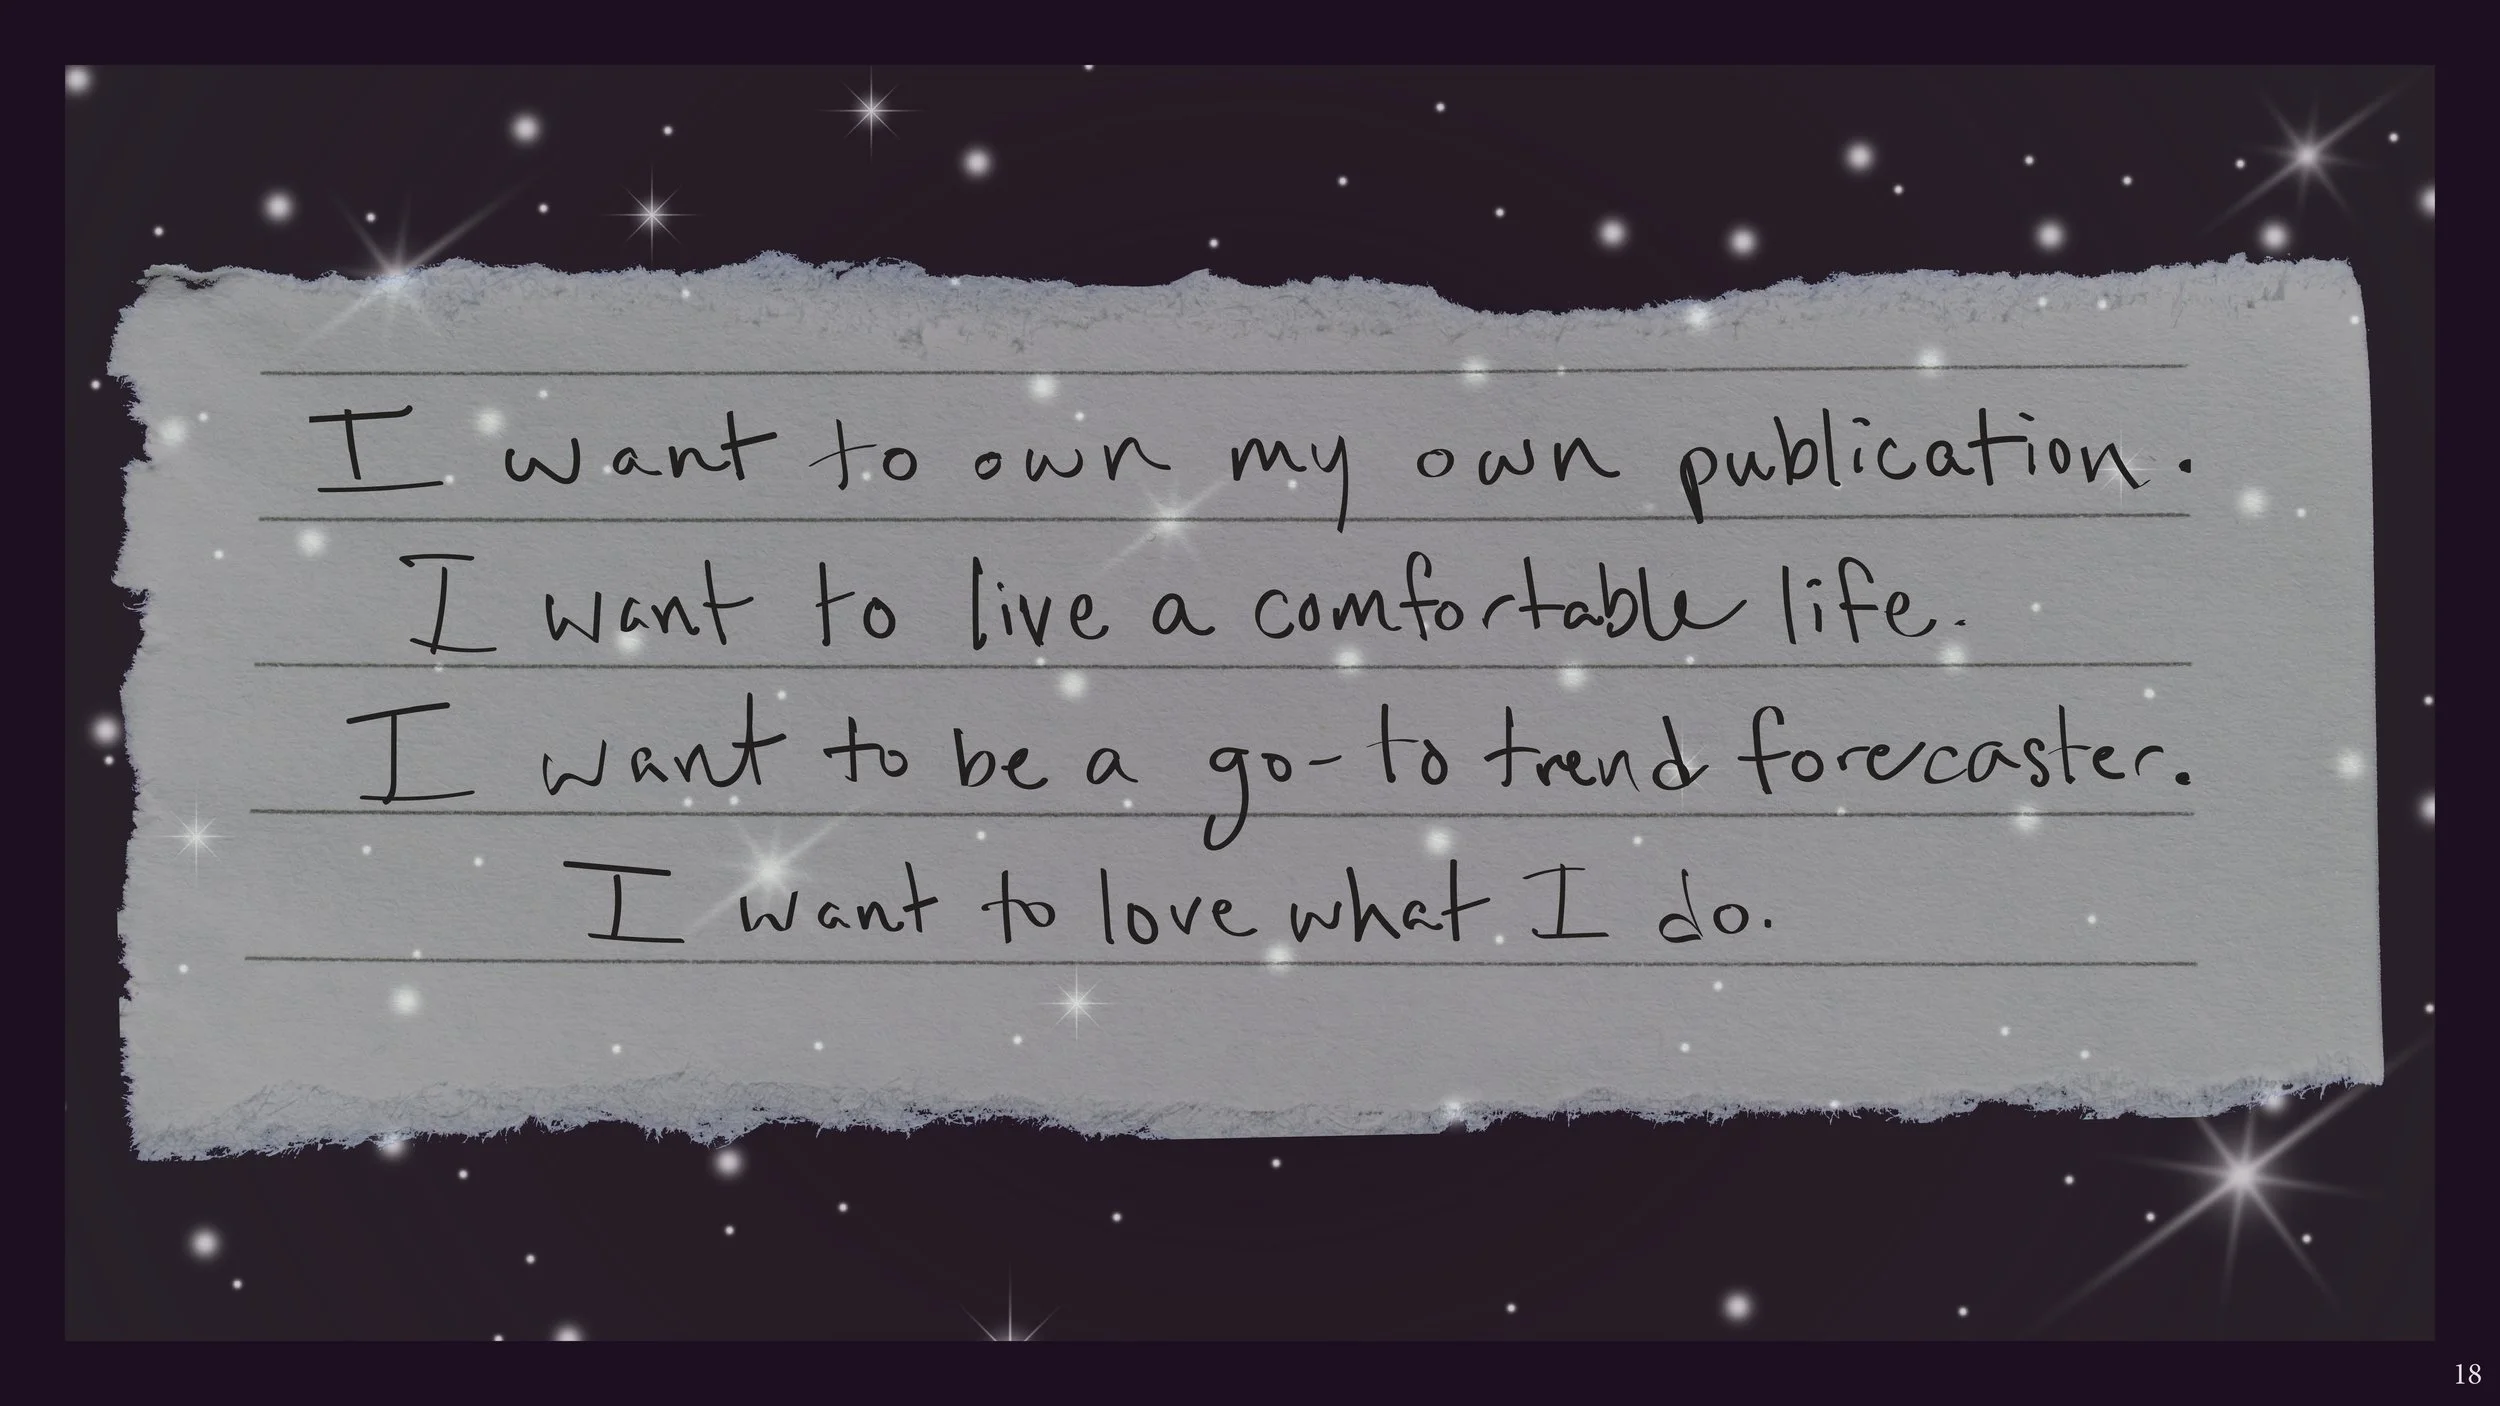 I want to own my own publication.
I want to live a comfortable life.
I want to be a go-to trend forecaster.
I want to love what I do.
18